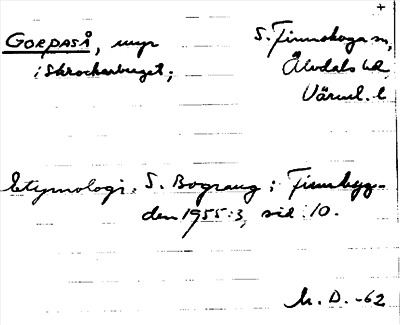 +
GORPASÅ, myr
i Skrockarberget;
S. Finnskoga sn,
Älvdals hd
Värml. l
Etymologi: S. Bograng i Finnbyg-
den 1955:3, sid 10.
M. D. -62